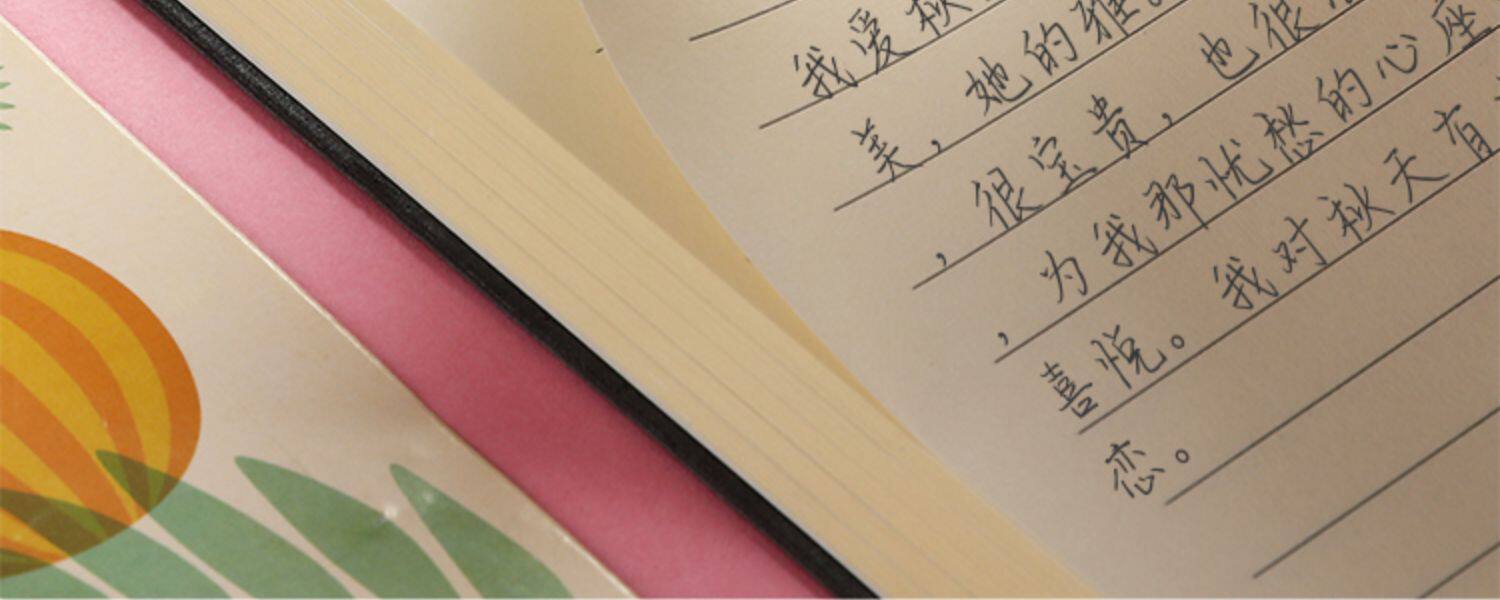 我爱秋
美，她的雅
，很宝贵，也很
，为我那忧愁的心座
喜悦。我对秋天有
恋。